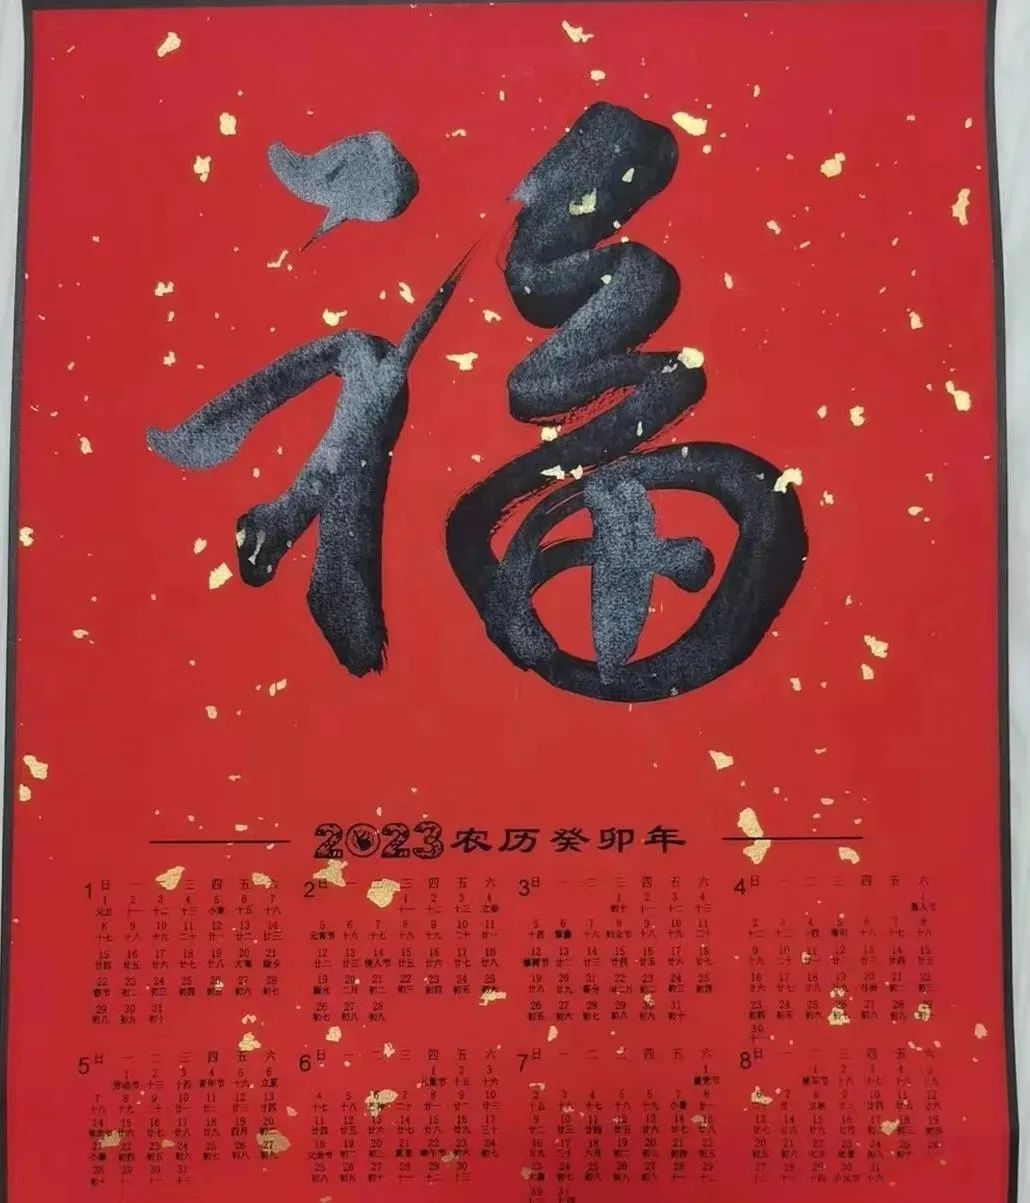 福
2023 农历癸卯年
1
日 一 二 三 四 五 六
1 2 3 4 5 6 7
元旦 十一 十二 十三 小寒 十五 十六
8 9 10 11 12 13 14
十七 十八 十九 二十 廿一 廿二 廿三
15 16 17 18 19 20 21
廿四 廿五 廿六 廿七 廿八 大寒 除夕
22 23 24 25 26 27 28
春节 初二 初三 初四 初五 初六 初七
29 30 31
初八 初九 初十
2
日 三 四 五 六
1 2 3 4
十一 十二 十三 立春
5 6 7 8 9 10 11
元宵节 十六 十七 十八 十九 二十 廿一
12 13 14 15 16 17 18
廿二 廿三 情人节 廿五 廿六 廿七 廿八
19 20 21 22 23 24 25
雨水 二月 初二 初三 初四 初五 初六
26 27 28
初七 初八 初九
3
日 一 二 三 四 五 六
1 2 3 4
初十 十一 十二 十三
5 6 7 8 9 10 11
十四 惊蛰 十六 妇女节 十八 十九 二十
12 13 14 15 16 17 18
植树节 廿二 廿三 廿四 廿五 廿六 廿七
19 20 21 22 23 24 25
廿八 廿九 春分 闰二月 初二 初三 初四
26 27 28 29 30 31
初五 初六 初七 初八 初九 初十
4
日 一 二 三 四 五 六
1
愚人节
2 3 4 5 6 7 8
十二 十三 十四 清明 十六 十七 十八
9 10 11 12 13 14 15
十九 二十 廿一 廿二 廿三 廿四 廿五
16 17 18 19 20 21 22
廿六 廿七 廿八 廿九 谷雨 初二 初三
23 24 25 26 27 28 29
初四 初五 初六 初七 初八 初九 初十
30
十一
5
日 一 二 三 四 五 六
1 2 3 4 5 6
劳动节 十三 十四 青年节 十六 立夏
7 8 9 10 11 12 13
十八 十九 二十 廿一 廿二 廿三 廿四
14 15 16 17 18 19 20
母亲节 廿六 廿七 廿八 廿九 四月 初二
21 22 23 24 25 26 27
小满 初四 初五 初六 初七 初八 初九
28 29 30 31
初十 十一 十二 十三
6
日 一 二 三 四 五 六
1 2 3
儿童节 十五 十六
4 5 6 7 8 9 10
十七 十八 二十 廿一 廿二 廿三
11 12 13 14 15 16 17
廿四 廿五 廿六 廿七 廿八 廿九 三十
18 19 20 21 22 23 24
父亲节 初二 初三 夏至 端午节 初六 初七
25 26 27 28 29 30
初八 初九 初十 十一 十二 十三
7
日 一 二 三 四 五 六
1
建党节
2 3 4 5 6 7 8
十五 十六 十七 十八 十九 小暑 廿一
9 10 11 12 13 14 15
廿二 廿三 廿四 廿五 廿六 廿七 廿八
16 17 18 19 20 21 22
廿九 三十 六月 初二 初三 初四 初五
23 24 25 26 27 28 29
大暑 初七 初八 初九 初十 十一 十二
30 31
8
日 一 二 三 四 五 六
1 2 3 4 5
建军节 十六 十七 十八 十九
6 7 8 9 10 11 12
二十 廿一 立秋 廿三 廿四 廿五 廿六
13 14 15 16 17 18 19
廿七 廿八 廿九 七月 初二 初三 初四
20 21 22 23 24 25 26
初五 初六 七夕 处暑 初九 初十 十一
27 28 29 30 31
十二 十三 十四 中元节 十六